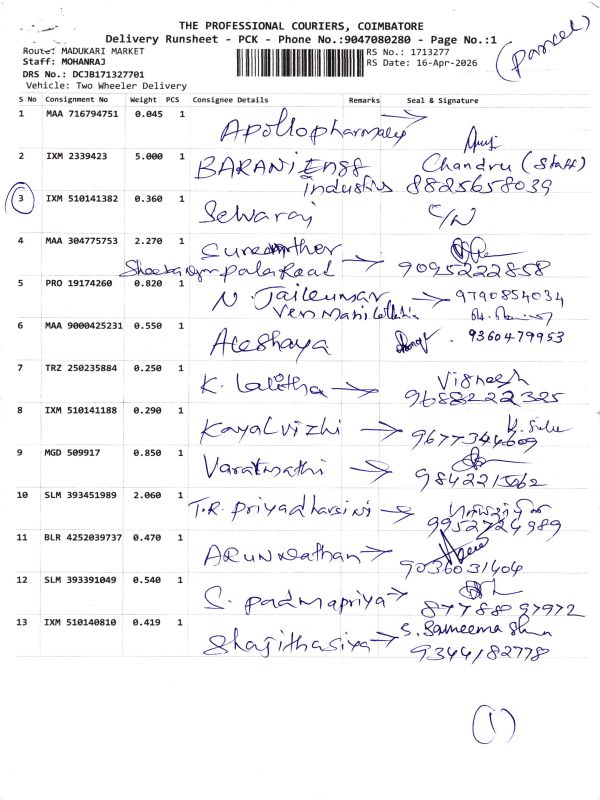 THE PROFESSIONAL COURIERS, COIMBATORE
Delivery Runsheet - PCK - Phone No.:9047080280 - Page No.:1
(Parcel)
Route: MADUKARI MARKET
RS No.: 1713277
Staff: MOHANRAJ
RS Date: 16-Apr-2026
DRS No.: DCJB171327701
Vehicle: Two Wheeler Delivery
S No Consignment No Weight PCS Consignee Details Remarks Seal & Signature
1 MAA 716794751 0.045 1
Apollopharmacy
2 IXM 2339423 5.000 1
BARANI Engg Chandru (Staff)
Industris 8825658039
3 IXM 510141382 0.360 1
Selvaraj C/N
4 MAA 304775753 2.270 1
9095222858
5 PRO 19174260 0.820 1
N. Jaikumar 9790854034
6 MAA 9000425231 0.550 1
9360479953
Ateshaya
7 TRZ 250235884 0.250 1
K. Lalitha Vignesh
9688222325
8 IXM 510141188 0.290 1
Kayalvizhi 9677344609
9 MGD 509917 0.850 1
Varatmathi
10 SLM 393451989 2.060 1
T.R. Priyadharsini
9952724989
11 BLR 4252039737 0.470 1
Arunnathan
9036031404
12 SLM 393391049 0.540 1
S. Padmapriya
8778897972
13 IXM 510140810 0.419 1
S. Sameema
Shajithasiya 9344182778
(1)